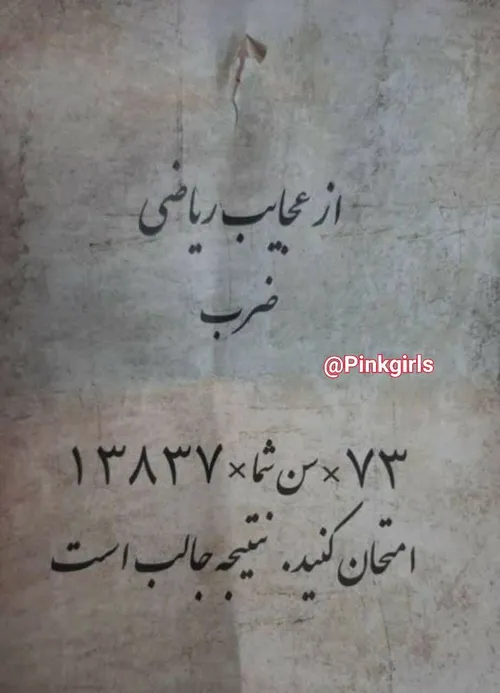 از عجایب ریاضی
ضرب
@Pinkgirls
۷۳ × سن شما × ۱۳۸۳۷
امتحان کنید. نتیجه جالب است